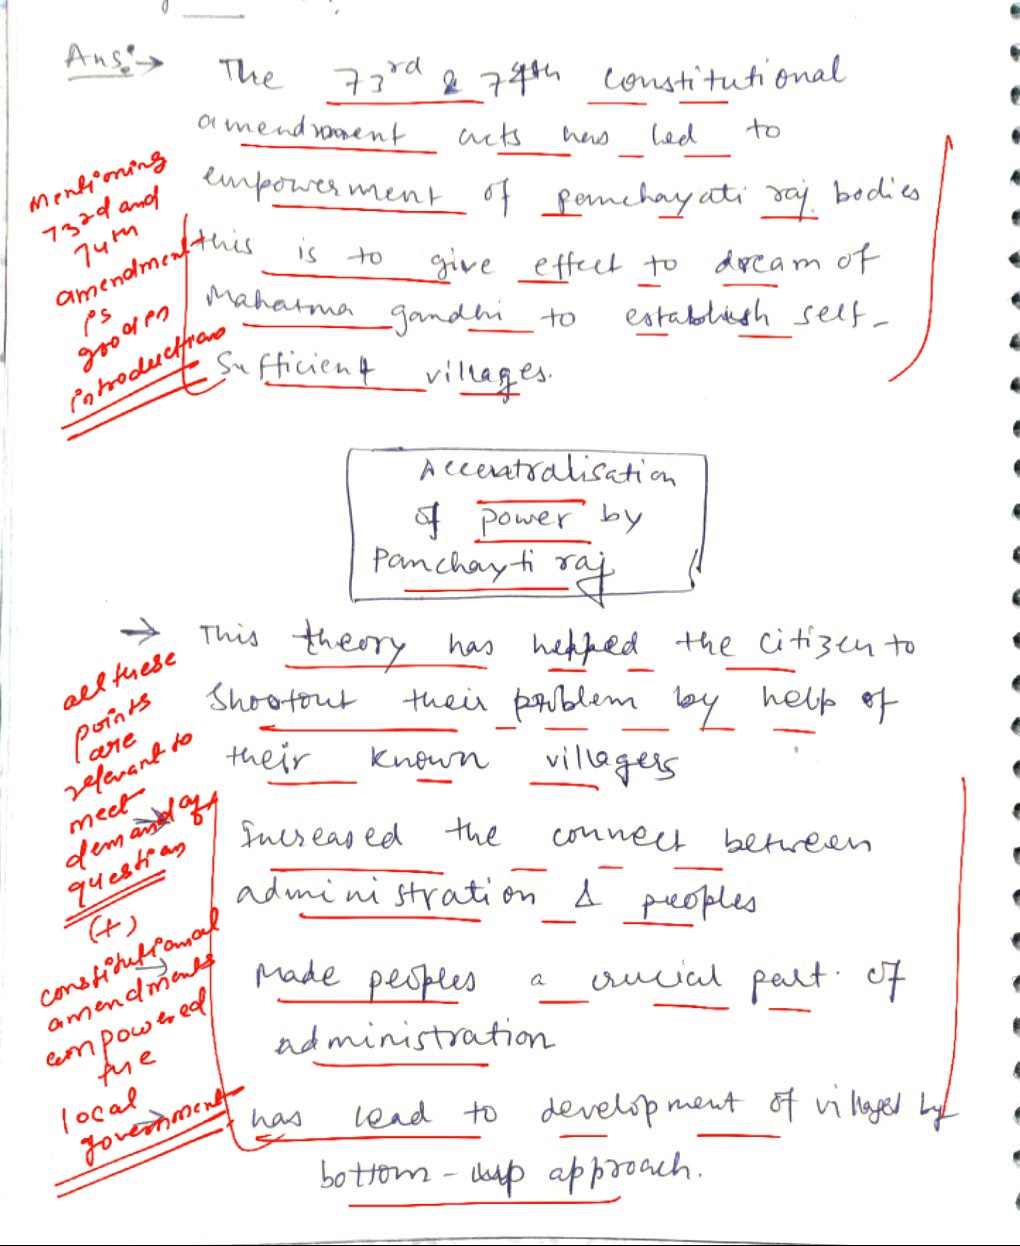 Ans:→
The 73rd & 74th constitutional
amendment acts has led to
empowerment of panchayati raj bodies
this is to give effect to dream of
Mahatma gandhi to establish self-
sufficient villages.
Mentioning
73rd and
74th
amendment
is
good in
introduction
Accentralisation
of power by
Panchayti raj
→ This theory has helped the citizen to
Shootout their problem by help of
their known villagers
→ Increased the connect between
administration & peoples
→ Made peoples a crucial part of
administration
→ has lead to development of villages by
bottom-up approach.
all these
points
are
relevant to
meet
demand of
question
(+)
constitutional
amendments
empowered
the
local
government